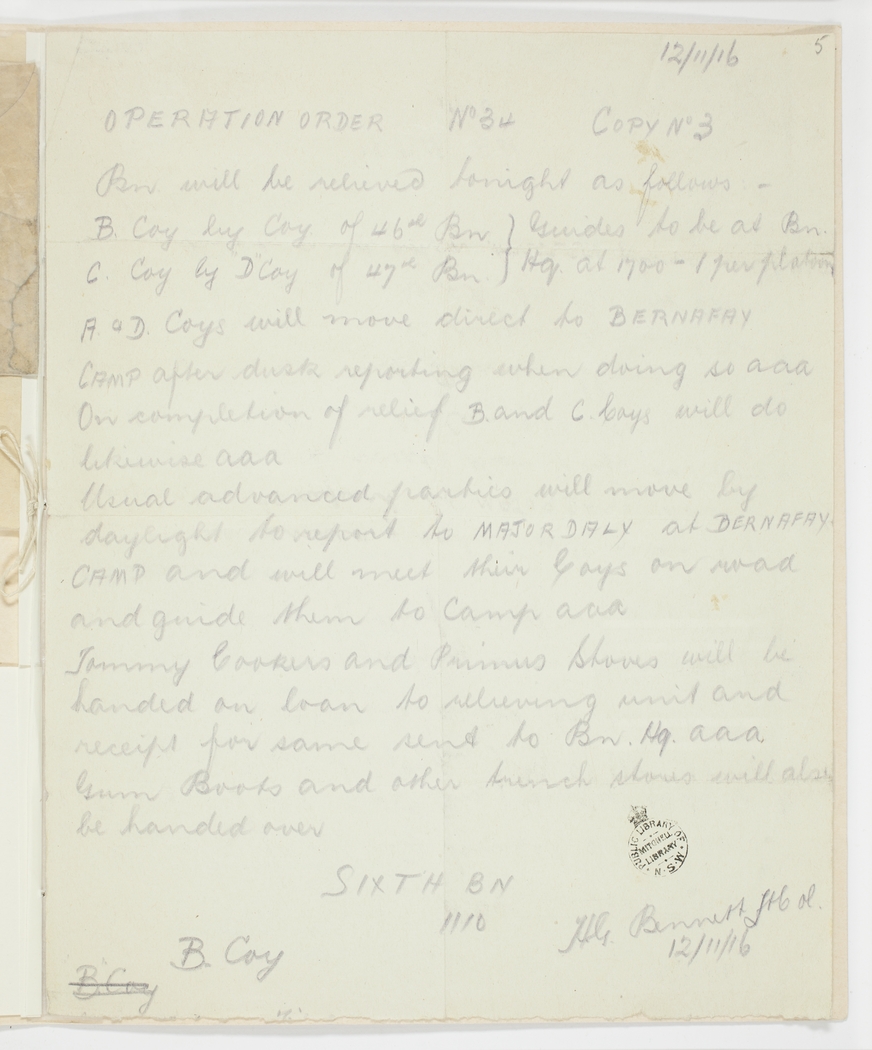 12/11/16
5
OPERATION ORDER No 34 COPY No 3
Bn will be relieved tonight as follows :-
B. Coy by Coy. of 46th Bn } Guides to be at Bn.
C. Coy by D Coy of 47th Bn. } Hq. at 1700 - 1 per platoon
A. & D. Coys will move direct to BERNAFAY
CAMP after dusk reporting when doing so aaa
On completion of relief B. and C. Coys will do
likewise aaa
Usual advanced parties will move by
daylight to report to MAJOR DALY at BERNAFAY
CAMP and will meet their Coys on road
and guide them to Camp aaa
Tommy Cookers and Primus Stoves will be
handed on loan to relieving unit and
receipt for same sent to Bn. Hq. aaa
Gum Boots and other trench stores will also
be handed over
PUBLIC LIBRARY OF N.S.W.
MITCHELL
LIBRARY
SIXTH BN
1110
H.G. Bennett Lt Col.
12/11/16
B. Coy
B. Coy